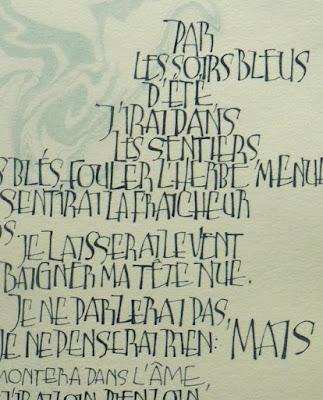 PAR
LES SOIRS BLEUS
D'ÉTÉ
J'IRAI DANS
LES SENTIERS
BLÉS, FOULER L'HERBE MENUE
SENTIRAI LA FRAICHEUR
JE LAISSERAI LE VENT
BAIGNER MA TÊTE NUE.
JE NE PARLERAI PAS,
JE NE PENSERAI RIEN: MAIS
MONTERA DANS L'ÂME,
J'IRAI LOIN, BIEN LOIN,